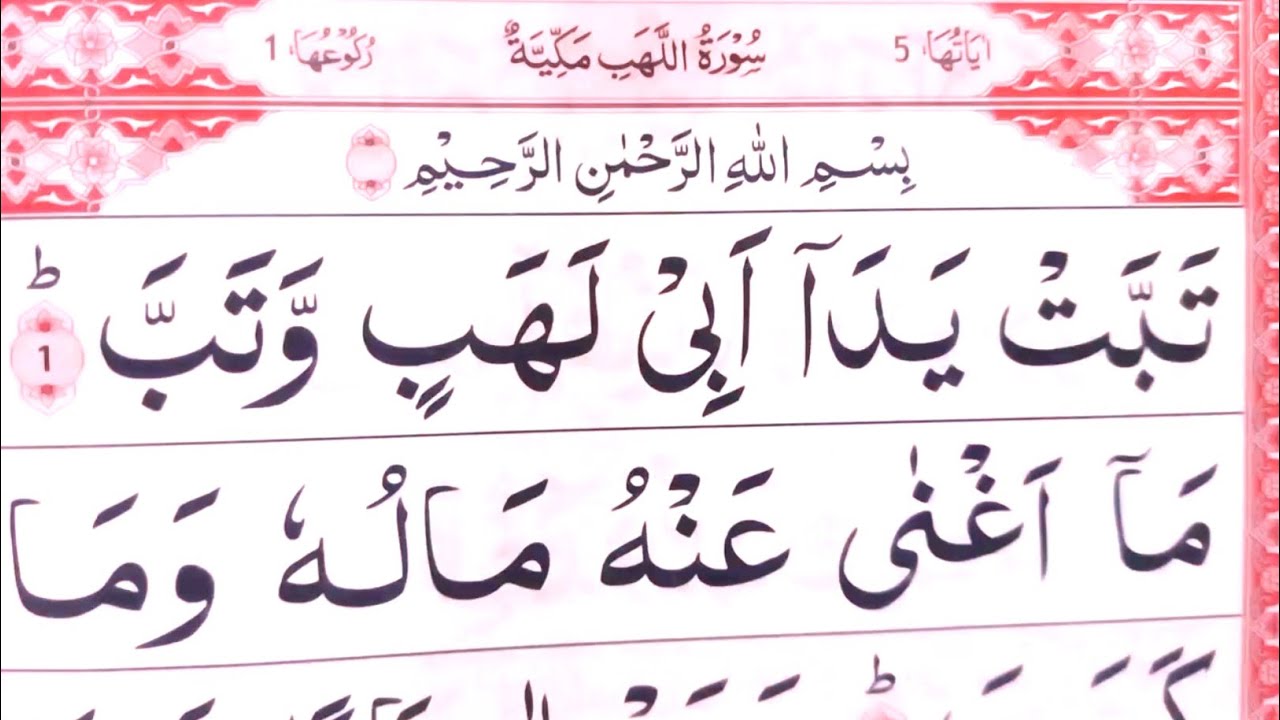 اٰيَاتُهَا 5 سُوْرَةُ اللَّهَبِ مَكِّيَّةٌ رُكُوْعُهَا 1
بِسْمِ اللهِ الرَّحْمٰنِ الرَّحِيْمِ
تَبَّتْ يَدَآ اَبِيْ لَهَبٍ وَّتَبَّ ؕ 1
مَآ اَغْنٰى عَنْهُ مَالُهٗ وَمَا